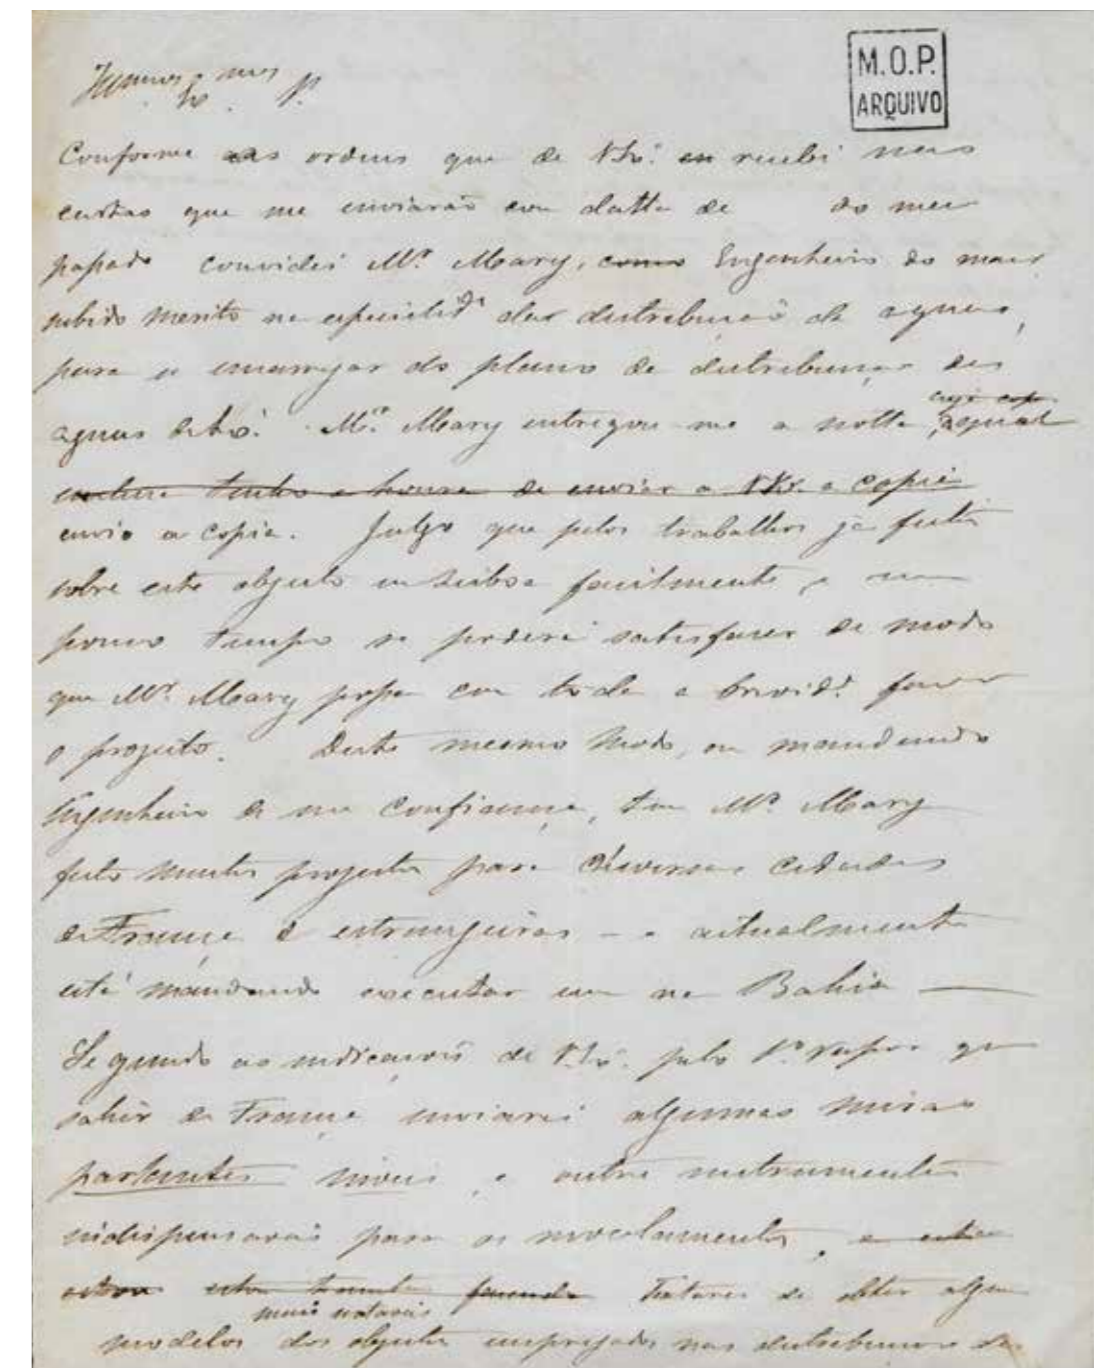 M.O.P.
ARQUIVO
Conforme as ordens que de V. Ex.ª recebi nas
cartas que me enviarão con datta de do mez
passado convidei Mr. Mary, como Engenheiro do mais
subido merito na especialid.de das distribuição de aguas,
para se encarregar do plano de distribuição das
cuja copia
aguas de Lx.ª Mr. Mary entregou me a notta, da qual
tenho a honra de enviar a V. Ex. a copia
envio a copia. Julgo que pelos trabalhos ja feitos
sobre este objecto em Lisboa facilmente, e em
pouco tempo se poderá satisfazer de modo
que Mr. Mary possa con toda a brevid.e fazer
o projecto. Deste mesmo modo, ou mandando
Engenheiro de sua confiança, tem Mr. Mary
feito muitos projectos para diversas cidades
de França e estrangeiras - e actualmente
está mandando executar um na Bahia —
Segundo as indicações de V. Ex.ª pelo 1.º vapor que
sahir de França enviarei algumas miras
parlantes niveis, e outros instrumentos
indispensaveis para os nivelamentos, e
estou fazendo Tratarei de obter alguns
mais notaveis
modelos dos objectos empregados nas distribuiçoes de